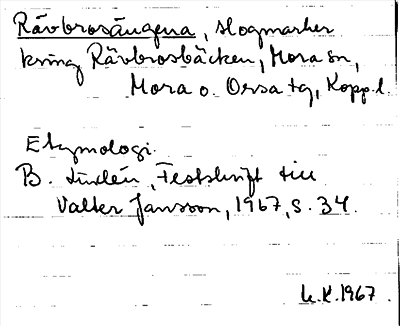 Rävbrosängena, slogmarker
kring Rävbrosbäcken, Mora sn,
Mora o. Orsa tg, Kopp. l.
Etymologi.
B. Lindén, Festskrift till
Valter Jansson, 1967, s. 34.
1967.